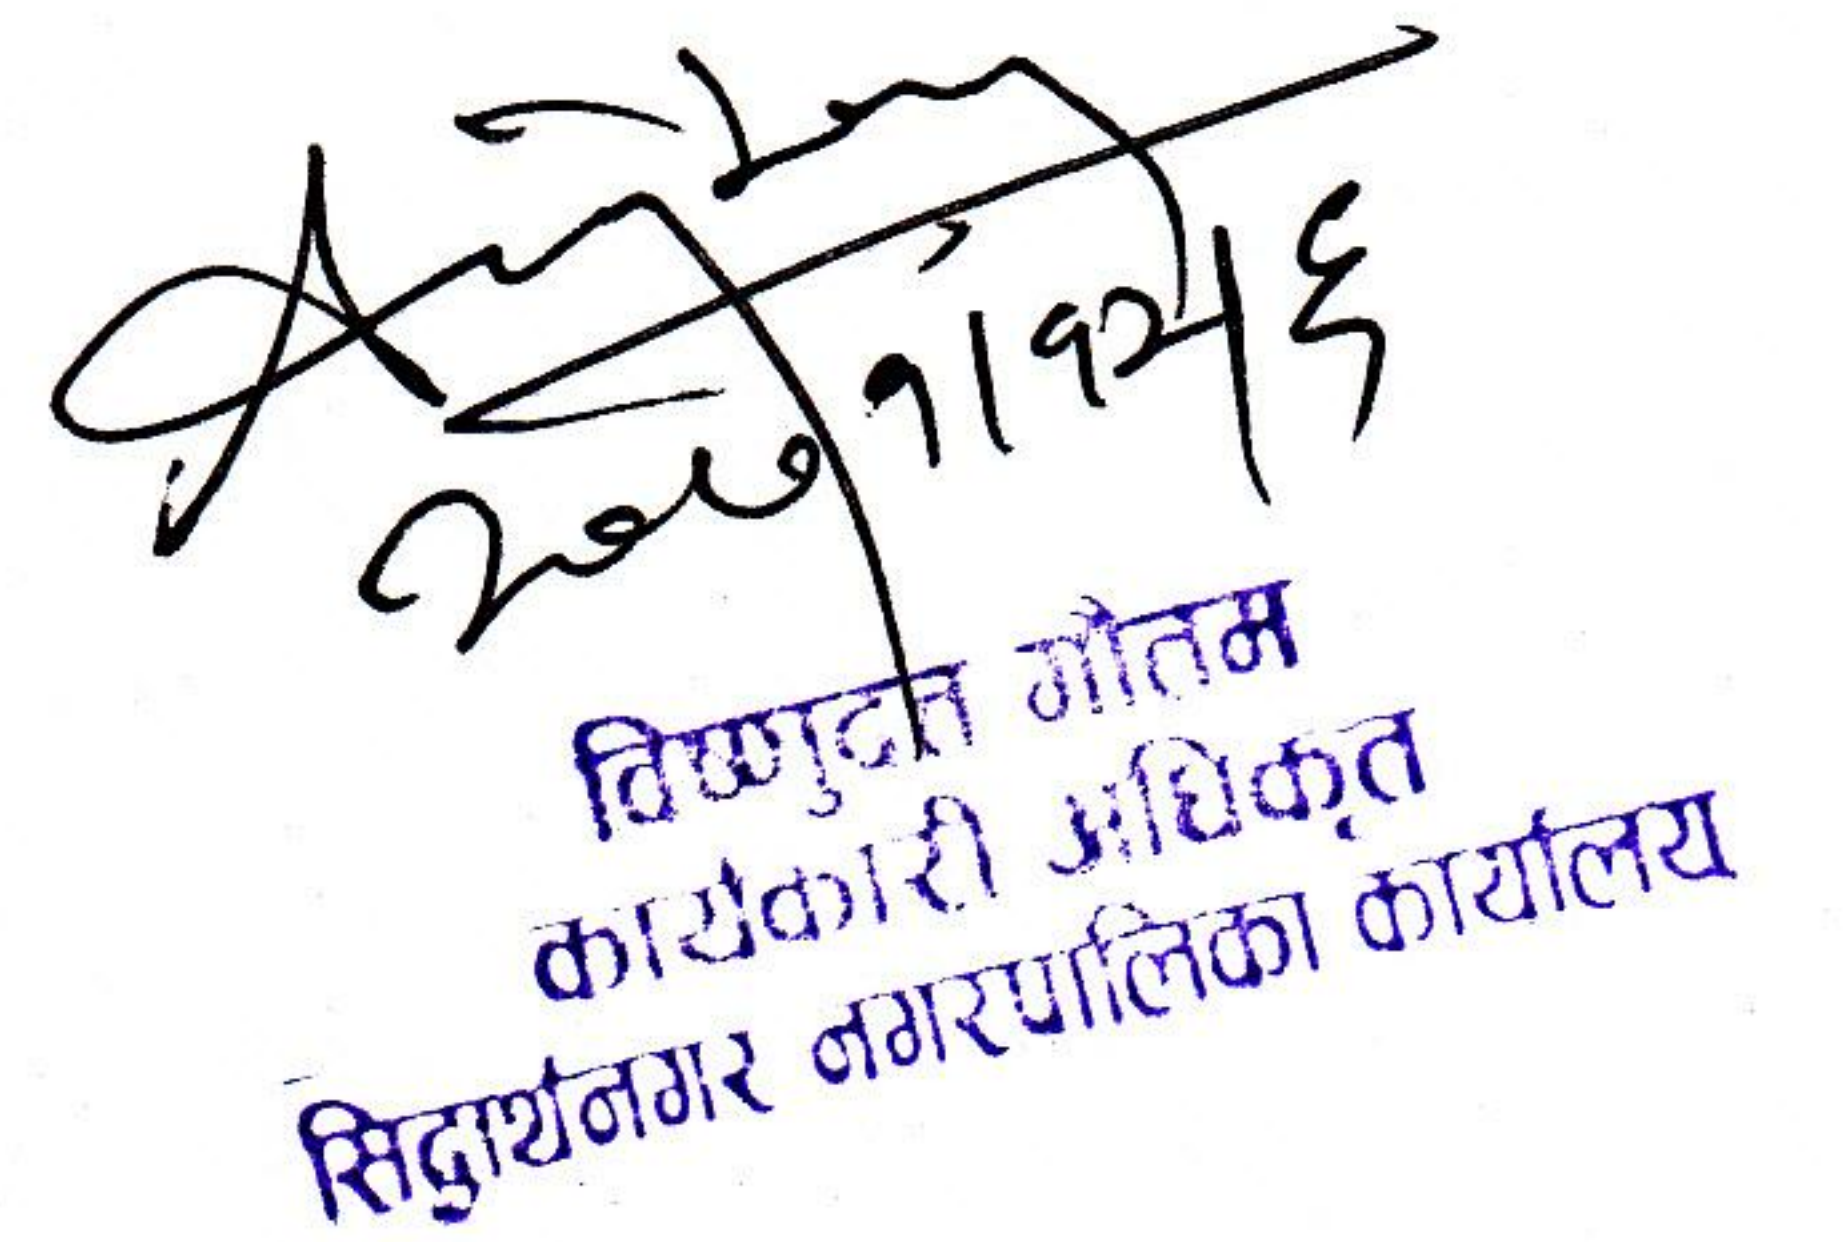 २०७१।१२।६
विष्णुदत्त गौतम
कार्यकारी अधिकृत
सिद्धार्थनगर नगरपालिका कार्यालय